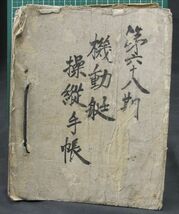 第六十八期
機動艇
操縦手帳